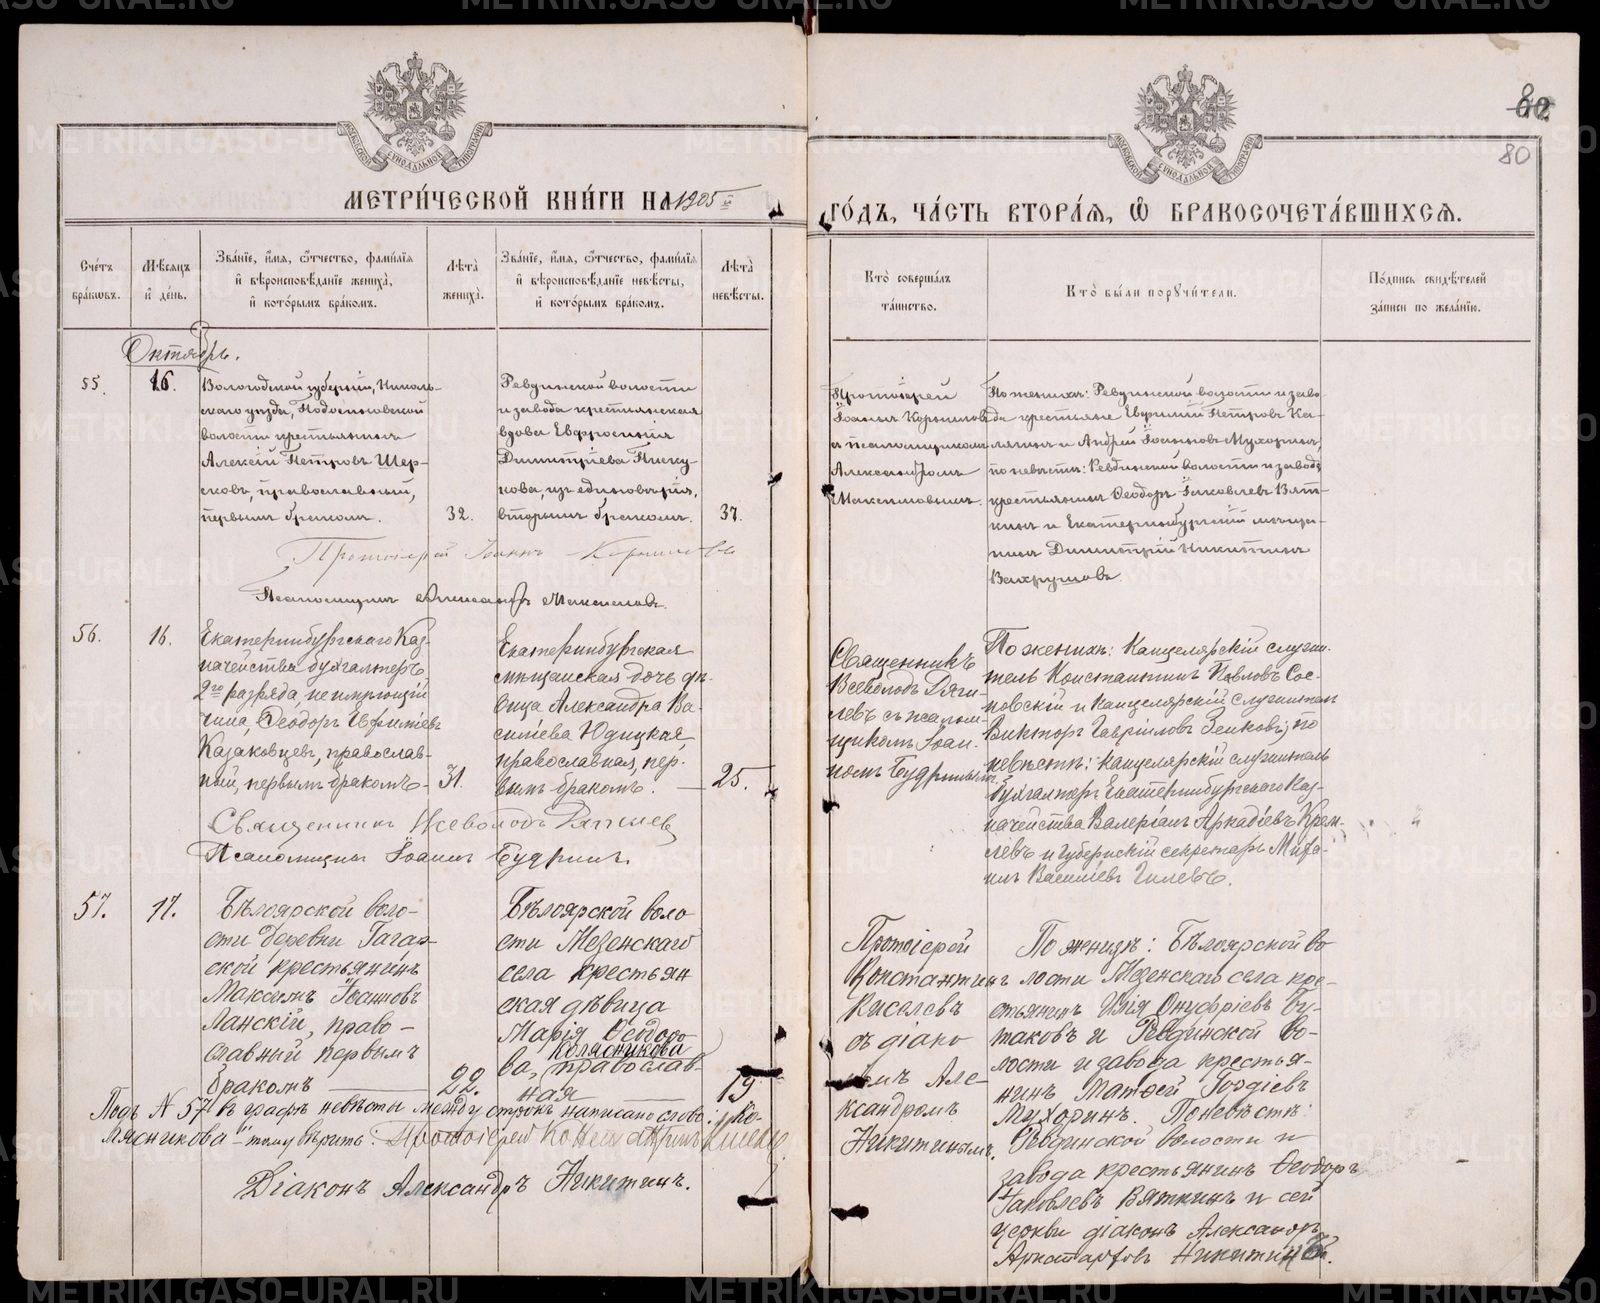 МЕТРИ́ЧЕСКОЙ КНИ́ГИ НА 1905 й
ГО́ДЪ, ЧА́СТЬ ВТОРА́Я, Ѡ БРАКОСОЧЕТА́ВШИХСЯ.
80
Сче́тъ бра́кѡвъ.
Мѣ́сяцъ и҆ де́нь.
Зва́нїе, и҆́мя, ѻ҆́тчество, фами́лїя и҆ вѣроисповѣ́данїе жениха̀, и҆ кото́рымъ бра́комъ.
Лѣ́та жениха̀.
Зва́нїе, и҆́мя, ѻ҆́тчество, фами́лїя и҆ вѣроисповѣ́данїе невѣ́сты, и҆ кото́рымъ бра́комъ.
Лѣ́та невѣ́сты.
Кто̀ соверша́лъ та́инство.
Кто̀ бы́ли порꙋчи́тели.
По́дпись свидѣ́телей за́писи по жела́нїю.
Октябрь.
55.
16.
Вологодской губерніи, Николь-
скаго уѣзда, Подосиновской
волости крестьянинъ
Алексій Петровъ Шер-
сковъ, православный,
первымъ бракомъ.
32.
Ревдинской волости
и завода крестьянская
вдова Евфросинія
Димитріева Писку-
нова, изъ единовѣрія,
вторымъ бракомъ.
37.
Протоіерей
Іоаннъ Корнилов
съ псаломщикомъ
Александромъ
Максимовымъ.
По женихѣ: Ревдинской волости и заво-
да крестьяне Евфимій Петровъ Ка-
и Андрей Іоанновъ Мухоринъ,
по невѣстѣ: Ревдинской волости и завода
крестьянинъ Ѳеодоръ Іаковлевъ Вят-
кинъ и Екатеринбургскій мѣща-
нинъ Димитрій Никитинъ
Вахрушовъ.
Протоіерей Іоаннъ Корниловъ
Псаломщикъ Александръ Максимовъ.
56.
16.
Екатеринбургскаго Каз-
начейства бухгалтеръ
2го разряда, не имѣющій
чина, Ѳеодоръ Ефиміевъ
Казаковцевъ, православ-
ный, первымъ бракомъ-
31.
Екатеринбургская
мѣщанская дочь дѣ-
вица Александра Ва-
силіева Юдицкая,
православная, пер-
вымъ бракомъ.
25.
Священникъ
Всеволодъ Дяги-
левъ съ псалом-
щикомъ Іоан-
номъ Будринымъ
По женихѣ: Канцелярскій служи-
тель Константинъ Павловъ Сос-
новскій и Канцелярскій служитель
Викторъ Гавріиловъ Зенковъ; по
невѣстѣ: Канцелярскій служитель
бухгалтеръ Екатеринбургскаго Каз-
начейства Валеріанъ Аркадіевъ Крем-
левъ и Губернскій секретарь Миха-
илъ Василіевъ Гилевъ.
Священникъ Всеволодъ Дягилев
Псаломщикъ Іоаннъ Будринъ.
57.
17.
Бѣлоярской воло-
сти деревни Гагар-
ской крестьянинъ
Максимъ Іоанновъ
Ланскій, право-
славный первымъ
бракомъ
22.
Бѣлоярской воло
сти Мезенскаго
села крестьян
ская дѣвица
Марія Ѳеодоро
Колясникова
ва, православ-
ная
19
Протоіерей
Константинъ
Киселевъ
съ діако
номъ Але-
ксандромъ
Никитинымъ.
По женихѣ: Бѣлоярской во
лости Мезенскаго села кре-
стьянинъ Илія Онуфріевъ Бу-
таковъ и Ревдинской во-
лости и завода крестья-
нинъ Матѳей Гордіевъ
Мухоринъ. По невѣстѣ:
Ревдинской волости и
завода крестьянинъ Ѳеодоръ
Іаковлевъ Вяткинъ и сей
церкви діаконъ Александръ
Аристарховъ Никитинъ.
Подъ N 57 въ графѣ невѣсты между строкъ написано слово: „Ко-
лясникова" тому вѣрить: Протоіерей Константинъ Киселевъ
Діаконъ Александръ Никитинъ.
METRIKI.GASO-URAL.RU